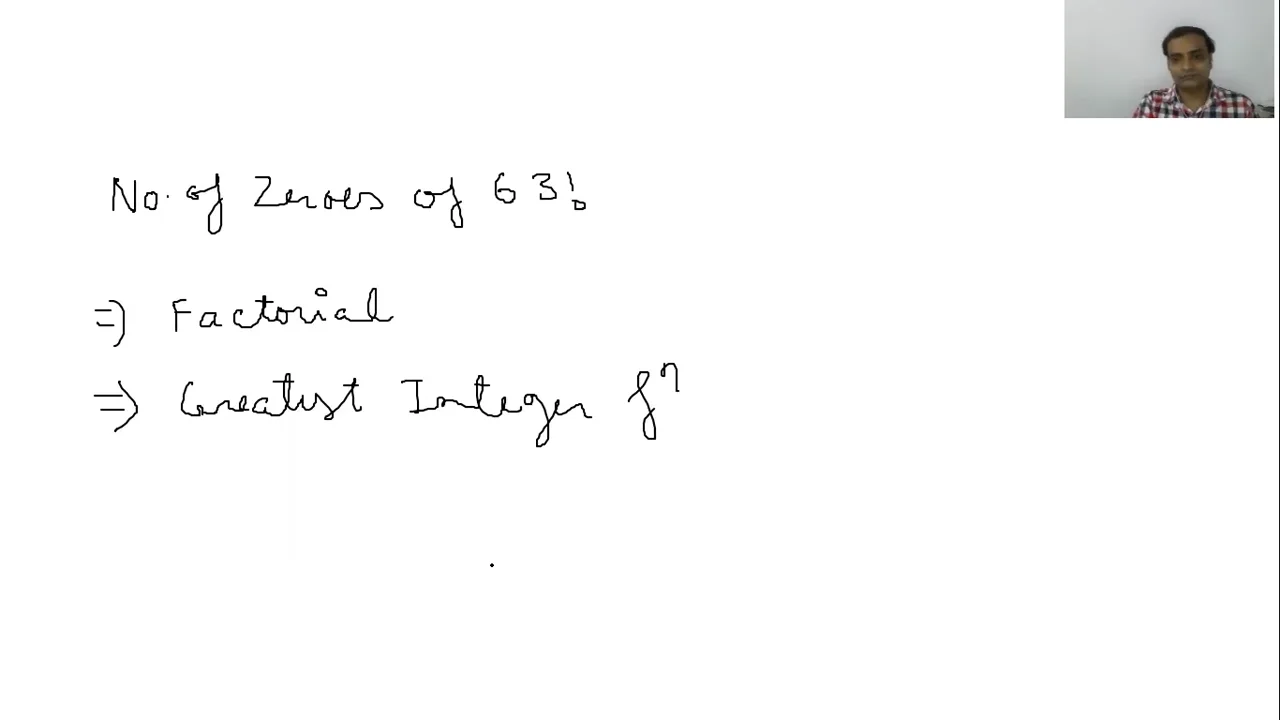 No. of Zeroes of 63!
⇒ Factorial
⇒ Greatest Integer fⁿ